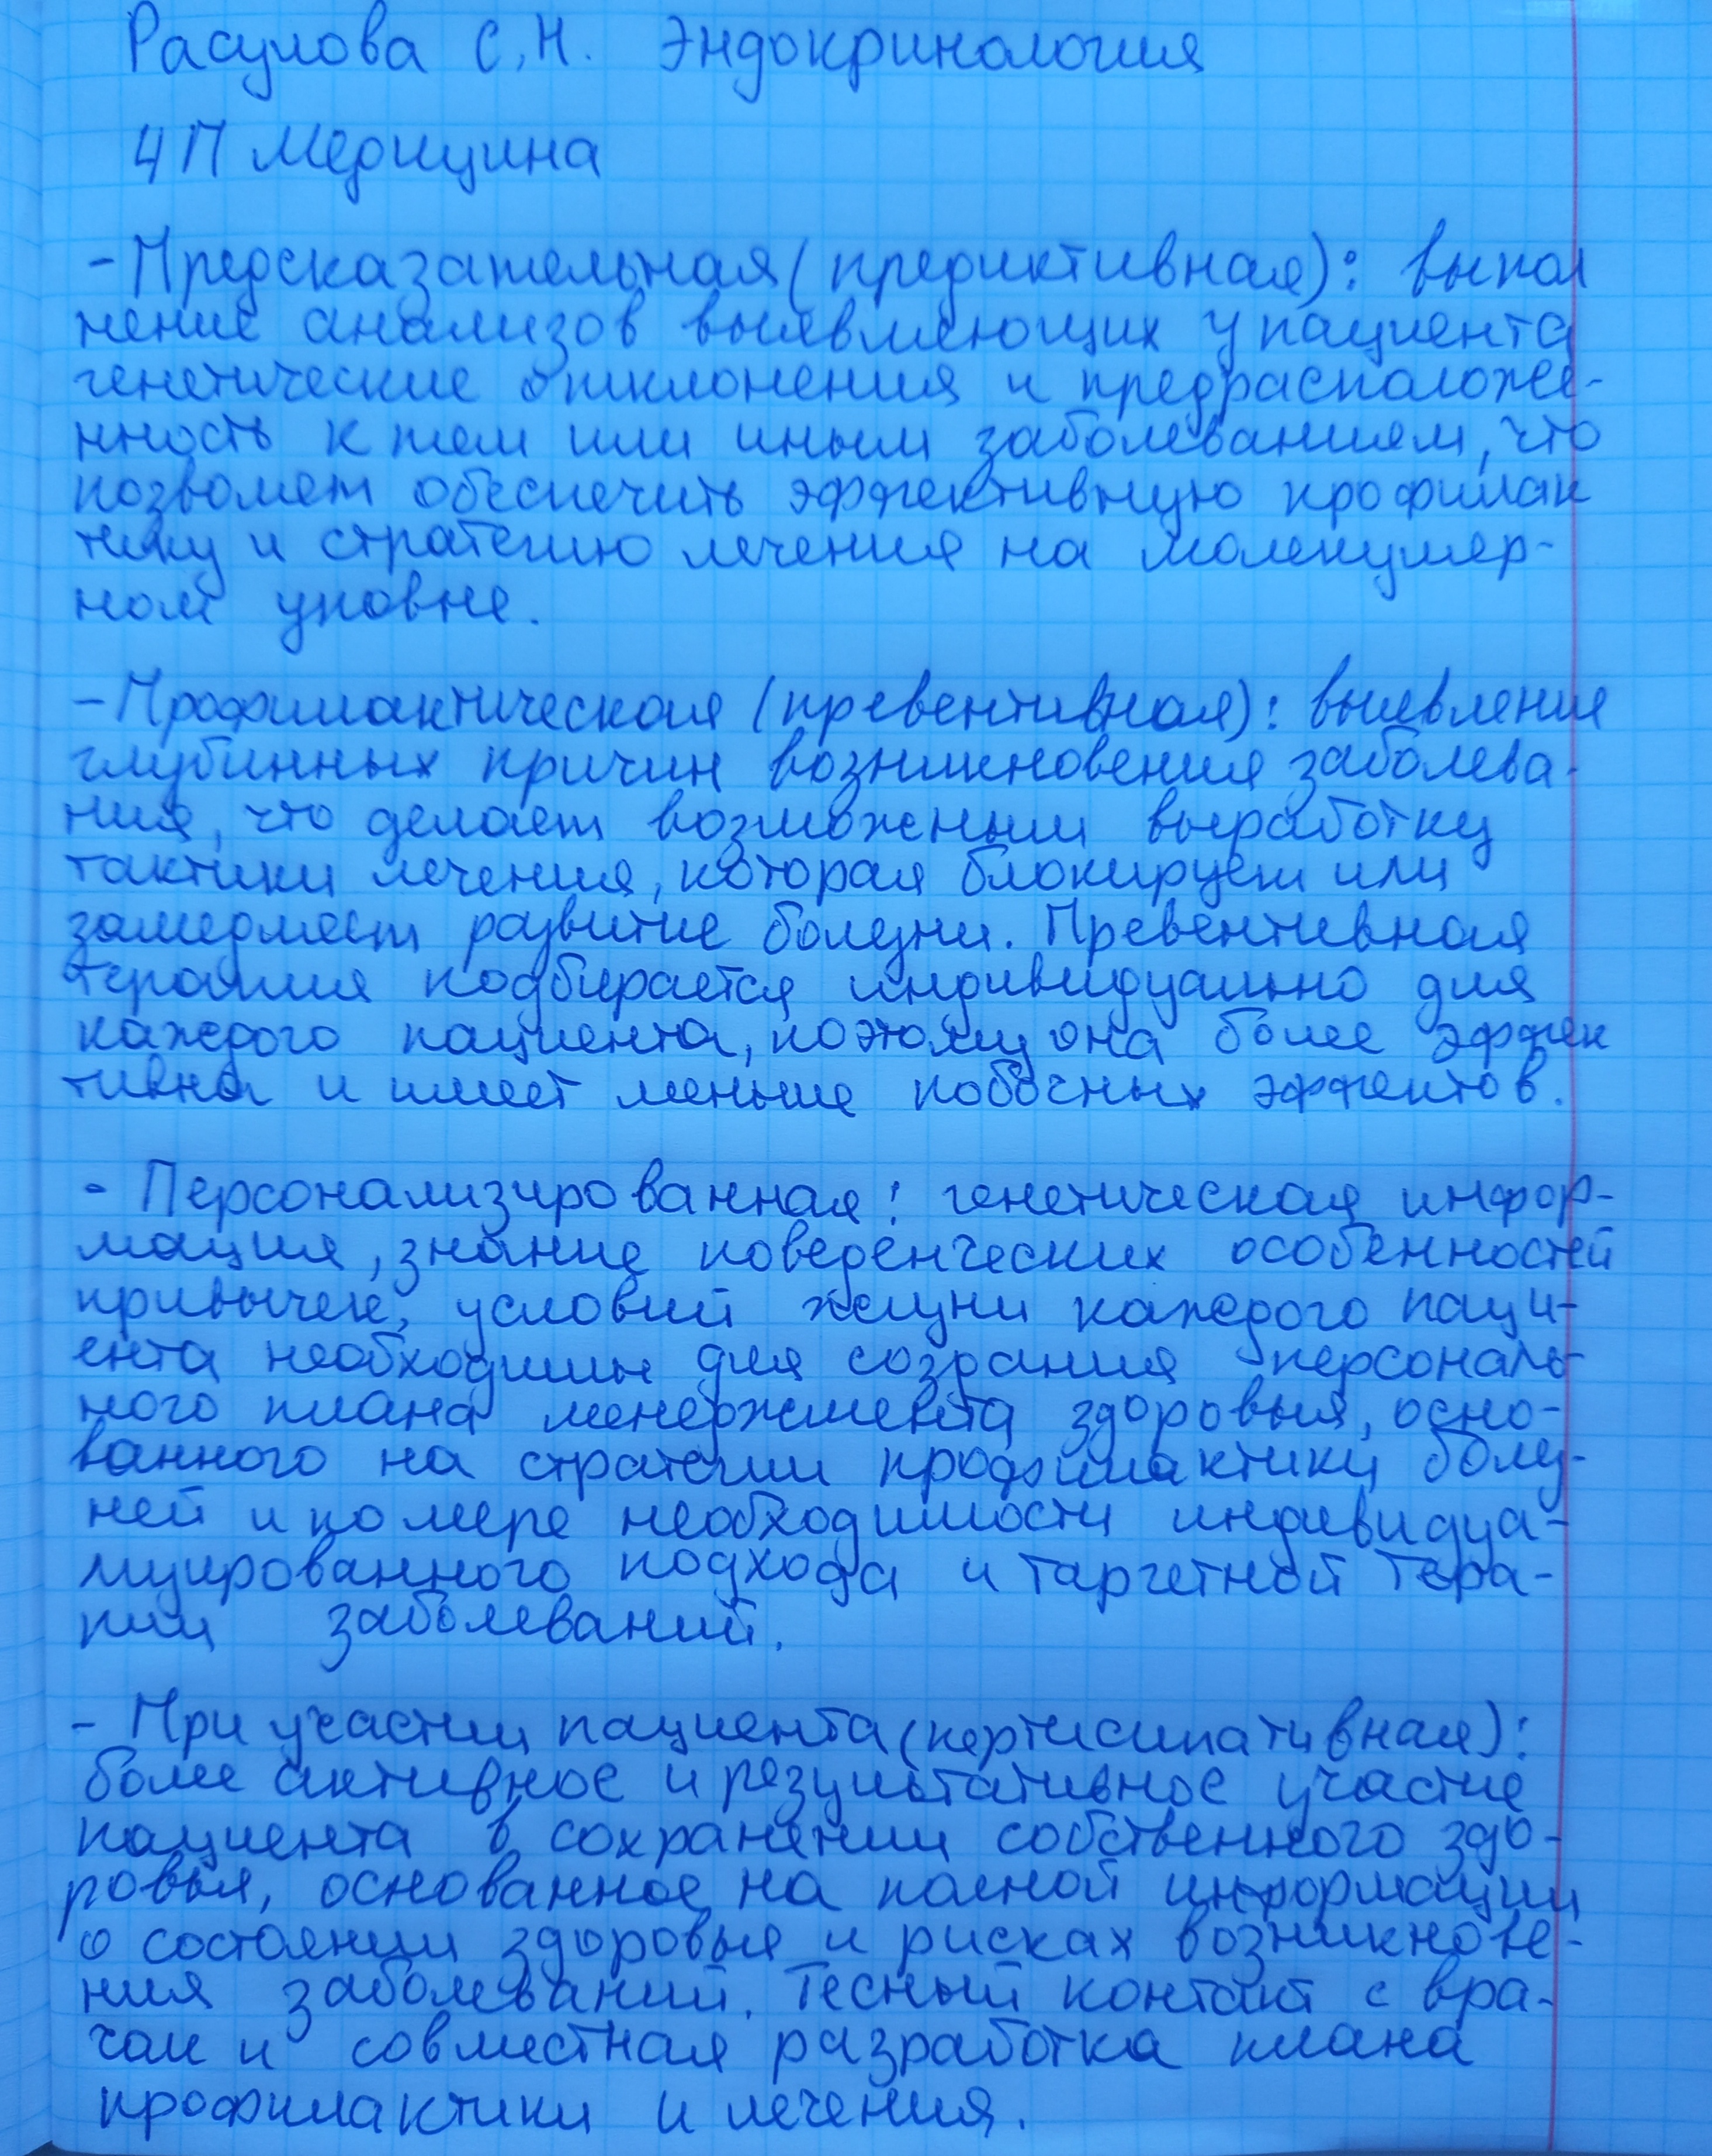 Расулова С.Н. Эндокринология
4П Медицина
- Предсказательная (предиктивная): выпол
нение анализов выявляющих у пациента
генетические отклонения и предрасположе-
нность к тем или иным заболеваниям, что
позволяет обеспечить эффективную профилак
тику и стратегию лечения на молекуляр-
ном уровне.
- Профилактическая (превентивная): выявление
глубинных причин возникновения заболева-
ния, что делает возможным выработку
тактики лечения, которая блокирует или
замедляет развитие болезни. Превентивная
терапия подбирается индивидуально для
каждого пациента, поэтому она более эффек
тивна и имеет меньше побочных эффектов.
- Персонализированная: генетическая инфор-
мация, знание поведенческих особенностей
привычек, условий жизни каждого паци-
ента необходимы для создания персональ-
ного плана менеджмента здоровья, осно-
ванного на стратегии профилактики болез-
ней и по мере необходимости индивидуа-
лизированного подхода и таргетной тера-
пии заболеваний.
- При участии пациента (партисипативная):
более активное и результативное участие
пациента в сохранении собственного здо-
ровья, основанное на полной информации
о состоянии здоровья и рисках возникнове-
ния заболеваний. Тесный контакт с вра-
чом и совместная разработка плана
профилактики и лечения.